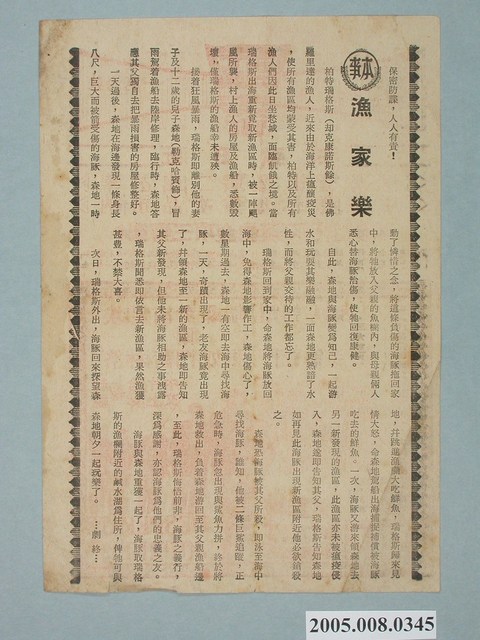 保密防諜，人人有責！
本事
漁家樂
柏特瑞格斯（却克康諾斯飾），是佛
羅里達的漁人，近來由於海洋上瘟瘟疫災
，使所有漁區均蒙受其害，柏特以及所有
漁人們因此日坐愁城，面臨飢餓之境。當
瑞格斯出海重新覓取新漁區時，被一陣颶
風所襲，村上漁人的房屋及漁船，悉數毀
壞，僅瑞格斯的漁船幸未遭殃。
接着狂風暴雨，瑞格斯即離別他的妻
子及十二歲的兒子森地（勒克哈賓飾），冒
雨駕着漁船去陸岸修理，臨行時，森地答
應其父獨自去把暴雨損害的房屋修整好。
一天過後，森地在海邊發現一條身長
八尺，巨大而被箭受傷的海豚，森地一時
動了憐惜之念，將這條負傷的海豚拖回家
中，將牠放入父親的魚欄內，與母親倆人
悉心替海豚治傷，使牠回復康健。
自此，森地與海豚變爲知己，一起游
水和玩耍其樂融融，一面森更熟諳了水
性，而將父親交待的工作都忘了。
瑞格斯回到家中，命森地將海豚放回
海中，免得森地影響作工，森地傷心了，
數星期過去，森地一有空即去海中尋找海
豚，一天，奇蹟出現了，老友海豚竟出現
了，幷領森地至一新的漁區，森地即告知
其父新發現，但他未將海豚相助之事洩露
，瑞格斯聞悉即依言去新漁區，果然漁獲
甚豐，不禁大喜。
次日，瑞格斯外出，海豚回來探望森
地，幷跳進漁欄大吃鮮魚，瑞格斯歸來見
情大怒，命森地駕船出海捕捉補償被海豚
吃去的鮮魚。一次，海豚又游來領森地去
另一新發現的漁區，此漁區亦未被瘟疫侵
入，森地遂即告知其父，瑞格斯告知森地
如再見此海豚出現新漁區附近他必欲鎗殺
之。
森地恐海豚被其父所殺，即泳至海中
尋找海豚，誰知，他被二條巨鯊追蹤，正
危急時，海豚忽出現與鯊魚力拼，終於將
森地救出，負着森地游回至其父親漁船邊
，至此，瑞格斯悔悟前非，海豚之義行，
深爲感謝，亦認海豚爲他們的忠義之友。
海豚與森地重獲一起了，海豚取瑞格
斯的漁欄附近的鹹水湖爲住所，俾牠可與
森地朝夕一起玩樂了。…劇終…
2005.008.0345